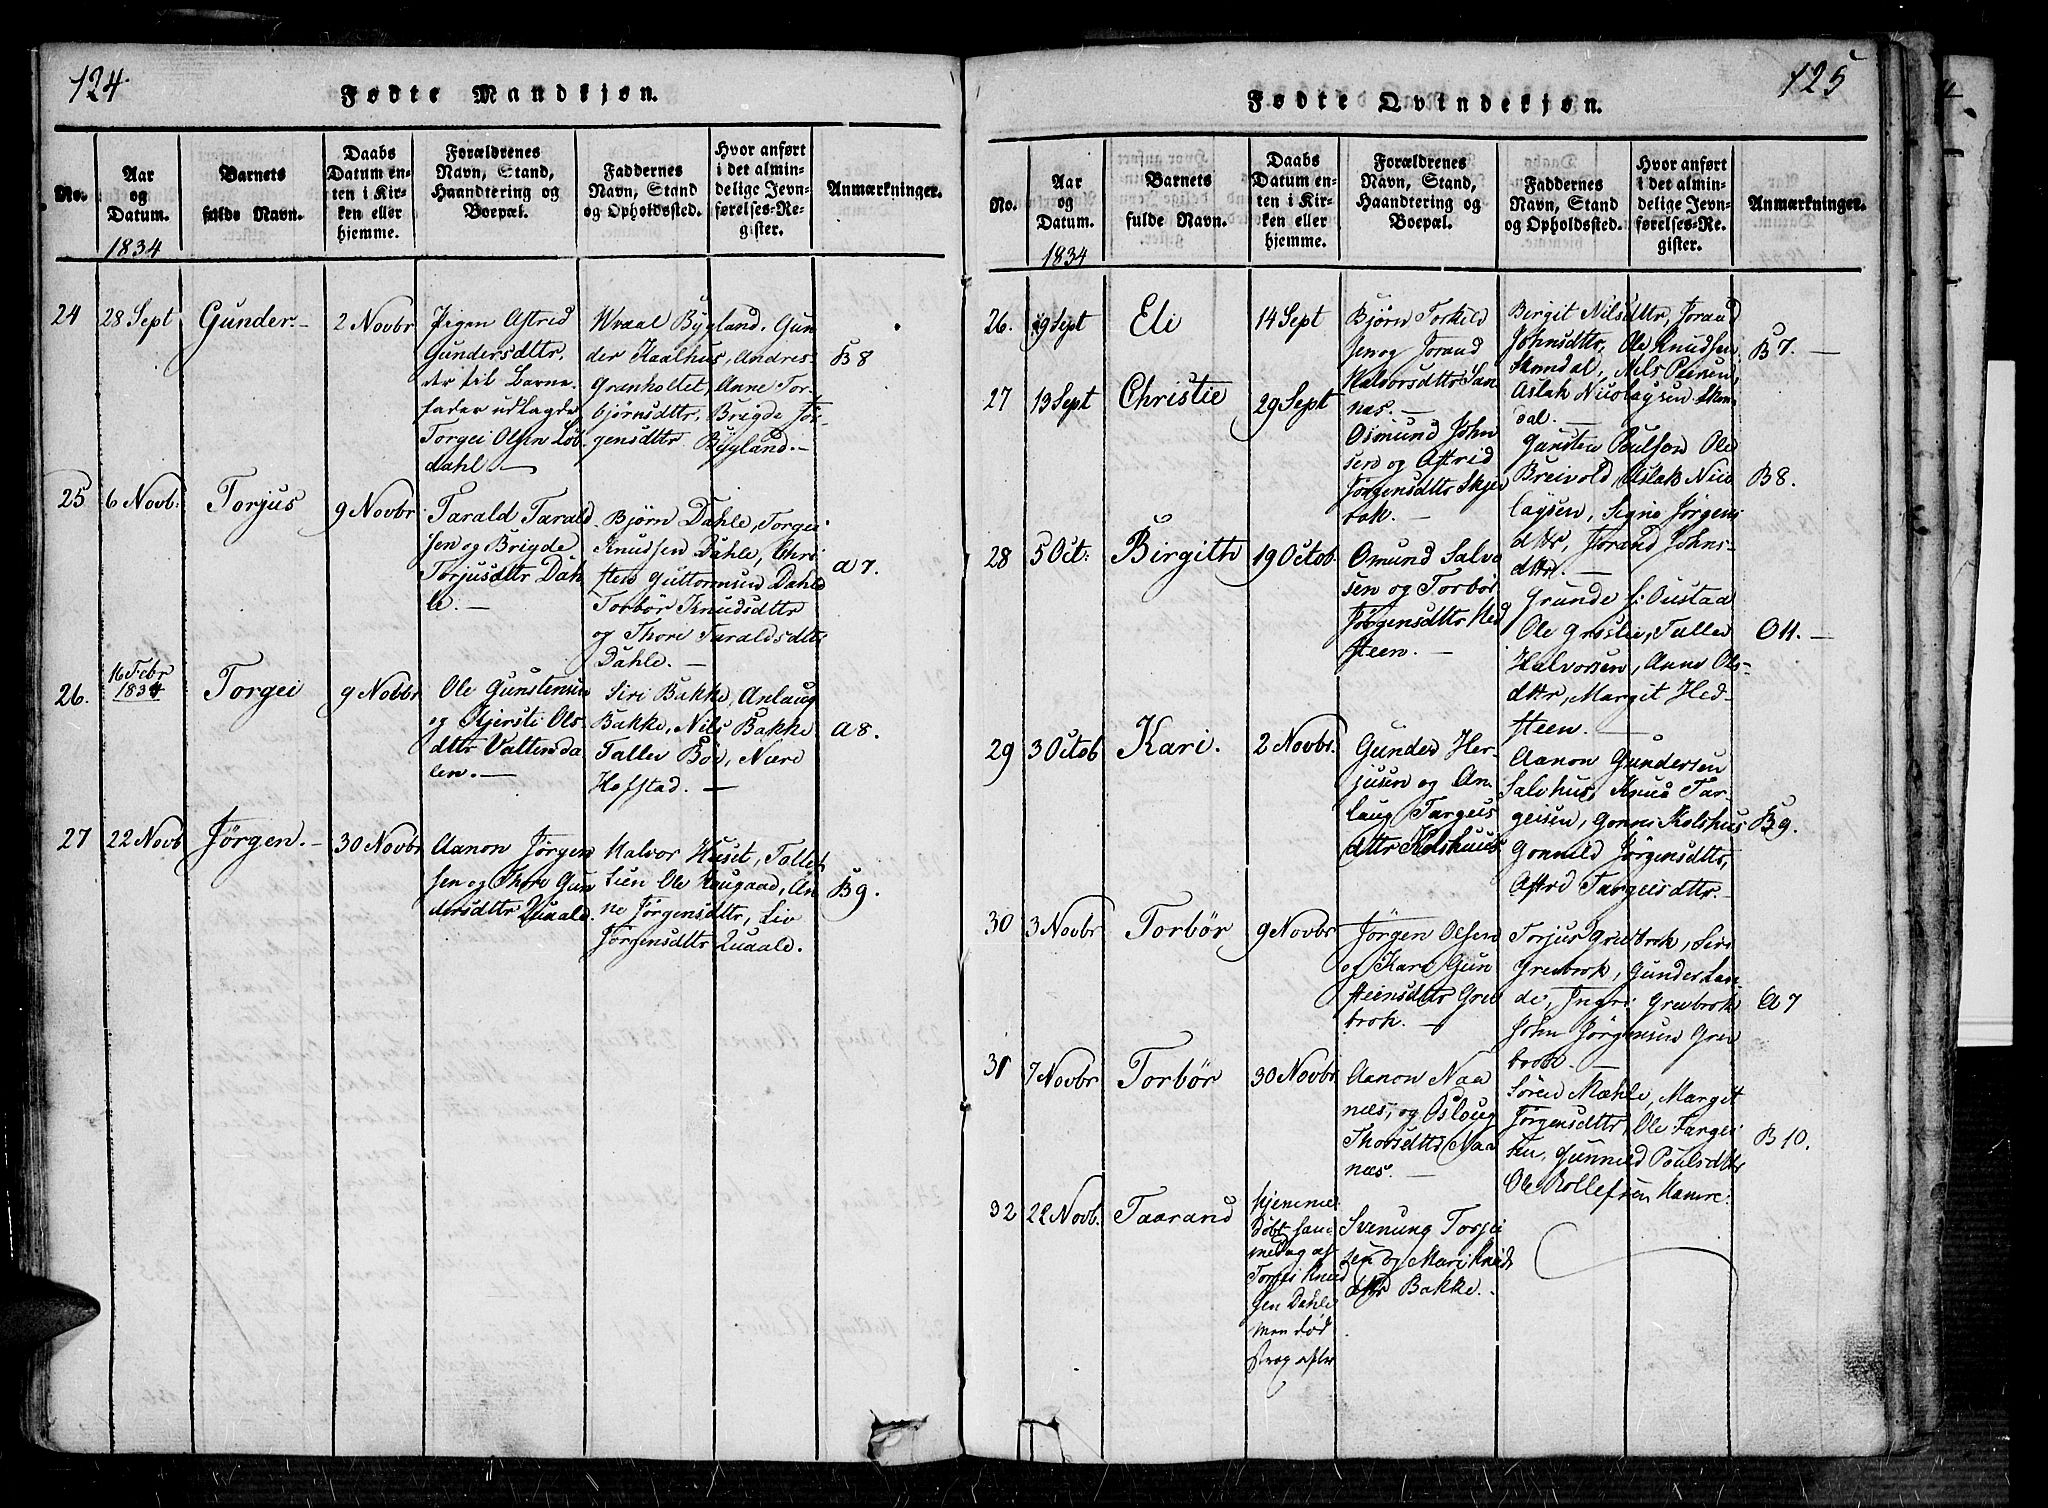 124.
Fødte Mandkjøn.
No.
Aar
og
Datum.
1834
Barnets
fulde Navn.
Daabs
Datum en-
ten i Kir-
ken eller
hjemme.
Forældrenes
Navn, Stand,
Haandtering og
Boepæl.
Faddernes
Navn, Stand
og Opholdssted.
Hvor anført
i det almin-
delige Jevn-
førelses-Re-
gister.
Anmærkninger.
24
28 Sept
Gunder.-
2 Novbr
Pigen Astrid
Gundersdttr,
der til Barne-
fader udlagde
Torgei Olsen Løb
dahl. -
Wraal Bygland. Gun
der Kaalhus, Andres
Granholtet, Anne Tor-
bjørnsdttr, Brigde Jør-
gensdttr Bygland. -
B 8
25
6 Novb:
Torjus
9 Novbr
Tarald Tarald
sen og Brigde
Torjusdttr Dah
le. -
Bjørn Dahle, Torgei
Knudsen Dahle, Chri
sten Guttormsen Dahle
Torbør Knudsdttr
og Thore Taraldsdttr
Dahle. -
a 7.
26.
16 Febr
1834
Torgei
9 Novbr
Ole Gunstensen
og Kjersti Ols
dttr Valtenda
len. -
Siri Bakke, Anlaug
Bakke, Nils Bakke
Tallev Bøe, Næri
Hofstad. -
a 8.
27
22 Novb
Jørgen. -
30 Novbr
Aanon Jørgen
sen og Thore Gun
dersdttr Quaale.
Halvor Huset, Tallef
Lien Ole Hougaad, An
ne Jørgensdttr, Liv
Jørgensdttr Quaale.
B 9.
125
Fødte Qvindekjøn.
No.
Aar
og
Datum.
1834
Barnets
fulde Navn.
Daabs
Datum en-
ten i Kir-
ken eller
hjemme.
Forældrenes
Navn, Stand,
Haandtering og
Boepæl.
Faddernes
Navn, Stand
og Opholdssted.
Hvor anført
i det almin-
delige Jevn-
førelses-Re-
gister.
Anmærkninger.
26.
9 Sept
Eli
14 Sept
Bjørn Torkild
sen og Jorand
Halvorsdttr San
næs. -
Birgit Nilsdttr, Jorand
Johnsdttr, Ole Knudsen
Skomdal, Nils
Aslak Nicolaysen Skom-
dal. -
B 7. -
27
13 Sept
Christie
29 Sept
Osmund John
sen og Astrid
Jørgensdttr Skjev
rak. -
Gunsten Poulson Ole
Breivold, Aslak Nico
laysen, Signe Jørgens
dttr, Jorand Johns-
dttr. -
B 8.
28
5 Oct:
Birgith
19 Octob.
Omund Salve
sen og Torbør
Jørgensdttr Hed
steen. -
Grunde s: Oustad
Ole Tallev
Halvorsen, Anne Ols-
dttr, Margit Hed-
steen. -
O 11. -
29
3 Octob
Kari.
2 Novbr.
Gunder Her-
jusen og An-
laug Targeis
dttr Kolshuus
Aanon Gundersen
Salvhus, Knud Tar-
geisen, Gonne Kolshus
Gonnild Jørgensdttr,
Astrid Targeisdttr.
B 9.
30
3 Novbr
Torbør
9 Novbr
Jørgen Olsen
og Kari Gun
steinsdttr Grev
brok. -
Torjus Grevbrok, Siri
Grevbrok, Gunder Lan-
de, Ingri Grevbrok
John Jørgensen Grev
brok. -
A 7
31
7 Novbr
Torbør
30 Novbr
Aanon Naa
næs, og Osloug
Thorsdttr Naa
næs. -
Søren Mæhle, Margit
Jørgensdttr, Ole Targei
sen, Gunnild Poulsdttr
Ole Rollefsen Hamre.
B 10.
32
22 Novb.
Taarand
hjemme
døbt sam-
me Dag af
Torjei Knud
sen Dahle
men død
strax efter
Svenung Torjei
sen og Mari Knuds
dttr Bakke.